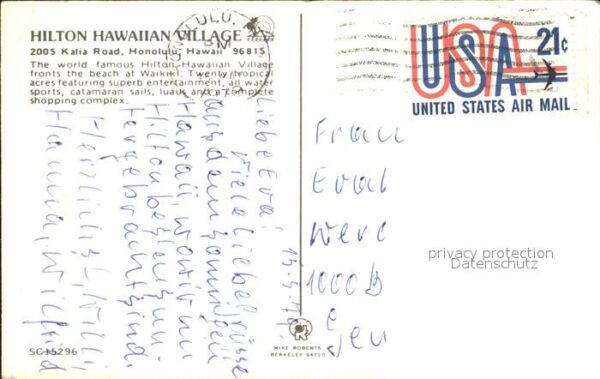 HILTON HAWAIIAN VILLAGE
2005 Kalia Road, Honolulu, Hawaii 96815
The world famous Hilton Hawaiian Village
fronts the beach at Waikiki. Twenty tropical
acres featuring superb entertainment, all water
sports, catamaran sails, luaus and a complete
shopping complex.
HONOLULU,
PM
USA
21¢
UNITED STATES AIR MAIL
15.4.76
Liebe Eva!
Viele liebe Grüsse
aus dem sonnigen
Hawaii, wo wir nun
Hilton
untergebracht sind.
Herzlichst, Willi
Hanna, Wilfried
Frau
Eva
Werc
1000 B
privacy protection
Datenschutz
SC15296
MIKE ROBERTS
BERKELEY 94710